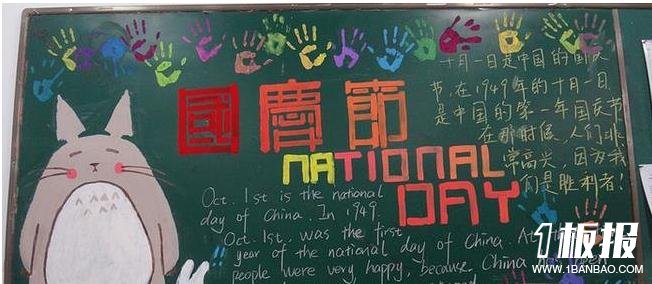 國慶節
NATIONAL
DAY
十月一日是中国的国庆
节，在1949年的十月一日，
是中国的第一年国庆节
在那时候，人们非
常高兴，因为我
们是胜利者！
Oct. 1st is the national
day of China. In 1949.
Oct. 1st. was the first
year of the national day of China. At
people were very happy, because. China
1板报
WWW.1BANBAO.COM